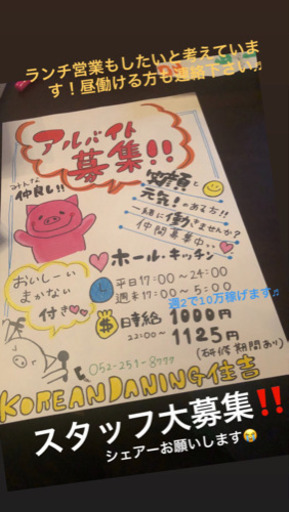 ランチ営業もしたいと考えていま
す！昼働ける方も連絡下さい♫
アルバイト
募集!!
みんな
仲良し!!
笑顔と
元気!のある方!!
一緒に働きませんか?
仲間募集中
ホール・キッチン
おいしーい
まかない
付き
平日17:00〜24:00
週末17:00〜5:00
週2で10万稼げます♫
時給 1000円
22:00〜 1125円
(研修期間あり)
052-251-8777
KOREAN DANING 住吉
スタッフ大募集‼️
シェアーお願いします😭